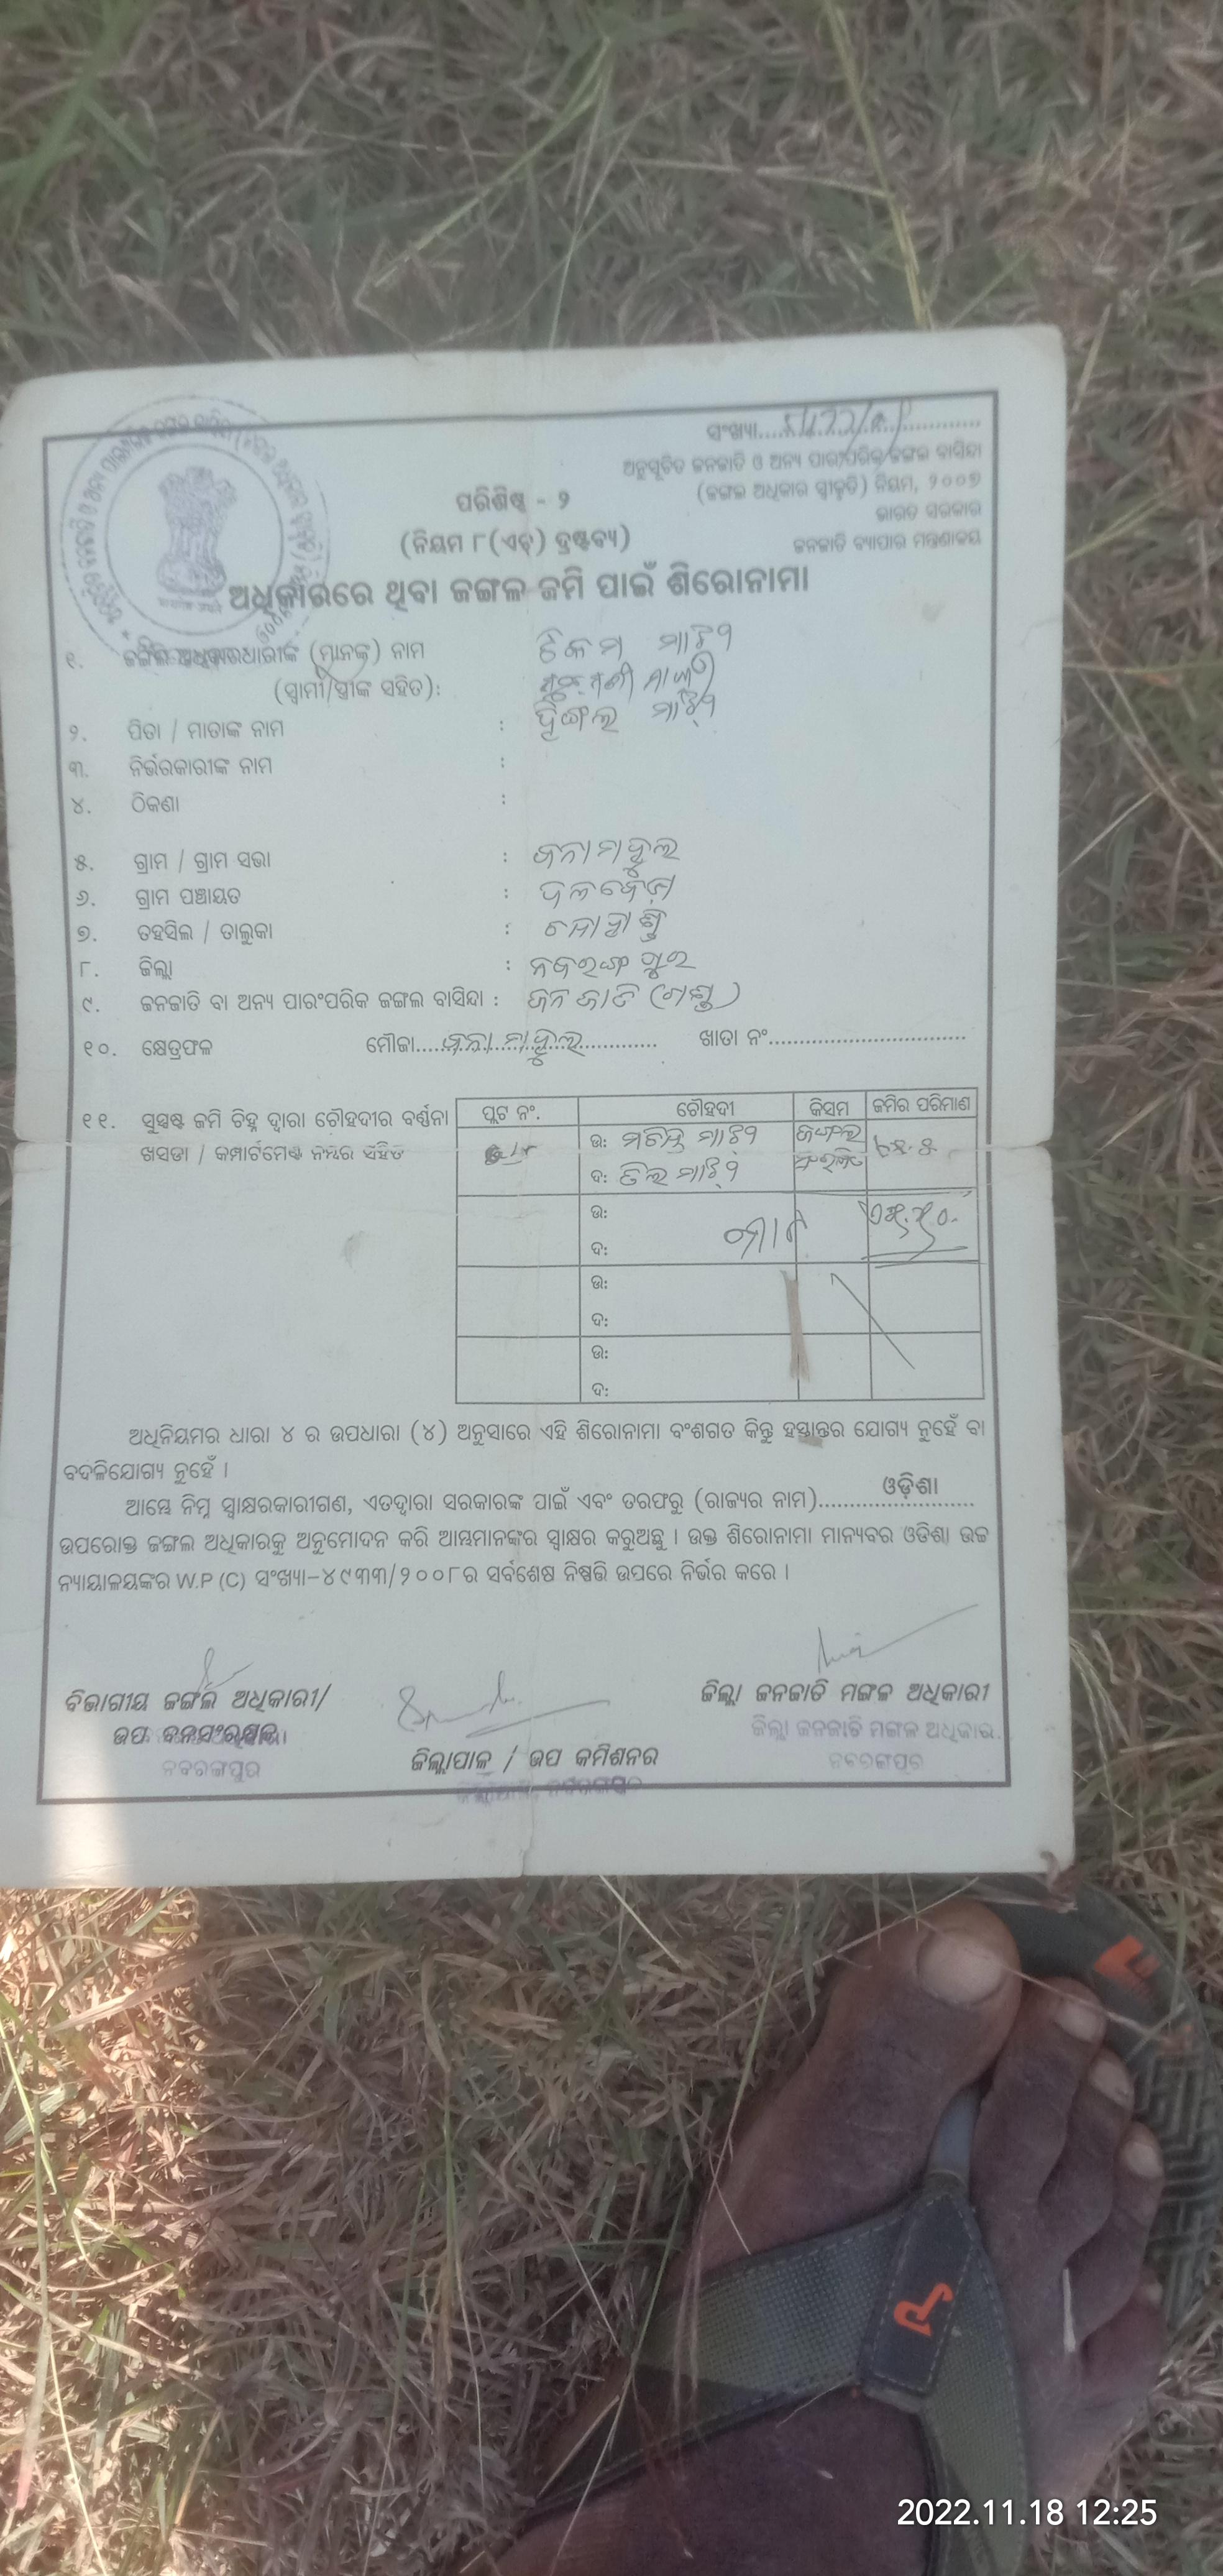 ସଂଖ୍ୟା
ଅନୁସୂଚିତ ଜନଜାତି ଓ ଅନ୍ୟ ପାରଂପରିକ ଜଙ୍ଗଲ ବାସିନ୍ଦା
(ଜଙ୍ଗଲ ଅଧିକାର ସ୍ୱୀକୃତି) ନିୟମ, ୨୦୦୭
ଭାରତ ସରକାର
ଜନଜାତି ବ୍ୟାପାର ମନ୍ତ୍ରଣାଳୟ
ପରିଶିଷ୍ଟ - ୨
(ନିୟମ ୮(ଏଚ୍) ଦ୍ରଷ୍ଟବ୍ୟ)
ଅଧିକାରରେ ଥିବା ଜଙ୍ଗଲ ଜମି ପାଇଁ ଶିରୋନାମା
୧. ଜଙ୍ଗଲ ଅଧିକାରଧାରୀଙ୍କ (ମାନଙ୍କ) ନାମ ଟିକମ ମାଝି
(ସ୍ୱାମୀ/ସ୍ତ୍ରୀଙ୍କ ସହିତ):
୨. ପିତା / ମାତାଙ୍କ ନାମ : ମାଝି
୩. ନିର୍ଭରକାରୀଙ୍କ ନାମ :
୪. ଠିକଣା :
୫. ଗ୍ରାମ / ଗ୍ରାମ ସଭା : ଜନାମାହୁଲ
୬. ଗ୍ରାମ ପଞ୍ଚାୟତ :
୭. ତହସିଲ / ତାଲୁକା :
୮. ଜିଲ୍ଲା : ନବରଙ୍ଗପୁର
୯. ଜନଜାତି ବା ଅନ୍ୟ ପାରଂପରିକ ଜଙ୍ଗଲ ବାସିନ୍ଦା : ଜନଜାତି (ଗଣ୍ଡ)
୧୦. କ୍ଷେତ୍ରଫଳ ମୌଜା....ଜନାମାହୁଲ.... ଖାତା ନଂ....
୧୧. ସୁସ୍ପଷ୍ଟ ଜମି ଚିହ୍ନ ଦ୍ୱାରା ଚୌହଦୀର ବର୍ଣ୍ଣନା
ଖସଡା / କମ୍ପାର୍ଟମେଣ୍ଟ ନମ୍ବର ସହିତ
ପ୍ଲଟ ନଂ. ଚୌହଦୀ କିସମ ଜମିର ପରିମାଣ
ଉ: ମାଝି ଜଙ୍ଗଲ
ଦ: ତିଲ ମାଝି
ଉ:
ଦ:
ଉ:
ଦ:
ଉ:
ଦ:
ଅଧିନିୟମର ଧାରା ୪ ର ଉପଧାରା (୪) ଅନୁସାରେ ଏହି ଶିରୋନାମା ବଂଶଗତ କିନ୍ତୁ ହସ୍ତାନ୍ତର ଯୋଗ୍ୟ ନୁହେଁ ବା
ବଦଳିଯୋଗ୍ୟ ନୁହେଁ ।
ଆମ୍ଭେ ନିମ୍ନ ସ୍ୱାକ୍ଷରକାରୀଗଣ, ଏତଦ୍ୱାରା ସରକାରଙ୍କ ପାଇଁ ଏବଂ ତରଫରୁ (ରାଜ୍ୟର ନାମ)....ଓଡ଼ିଶା....
ଉପରୋକ୍ତ ଜଙ୍ଗଲ ଅଧିକାରକୁ ଅନୁମୋଦନ କରି ଆମ୍ଭମାନଙ୍କର ସ୍ୱାକ୍ଷର କରୁଅଛୁ । ଉକ୍ତ ଶିରୋନାମା ମାନ୍ୟବର ଓଡିଶା ଉଚ୍ଚ
ନ୍ୟାୟାଳୟଙ୍କର W.P (C) ସଂଖ୍ୟା-୪୯୩୩/୨୦୦୮ର ସର୍ବଶେଷ ନିଷ୍ପତ୍ତି ଉପରେ ନିର୍ଭର କରେ ।
ବିଭାଗୀୟ ଜଙ୍ଗଲ ଅଧିକାରୀ/
ଉପ ବନସଂରକ୍ଷକ
ନବରଙ୍ଗପୁର
ଜିଲ୍ଲାପାଳ / ଉପ କମିଶନର
ଜିଲ୍ଲା ଜନଜାତି ମଙ୍ଗଳ ଅଧିକାରୀ
ଜିଲ୍ଲା ଜନଜାତି ମଙ୍ଗଳ ଅଧିକାରୀ
ନବରଙ୍ଗପୁର
2022.11.18 12:25